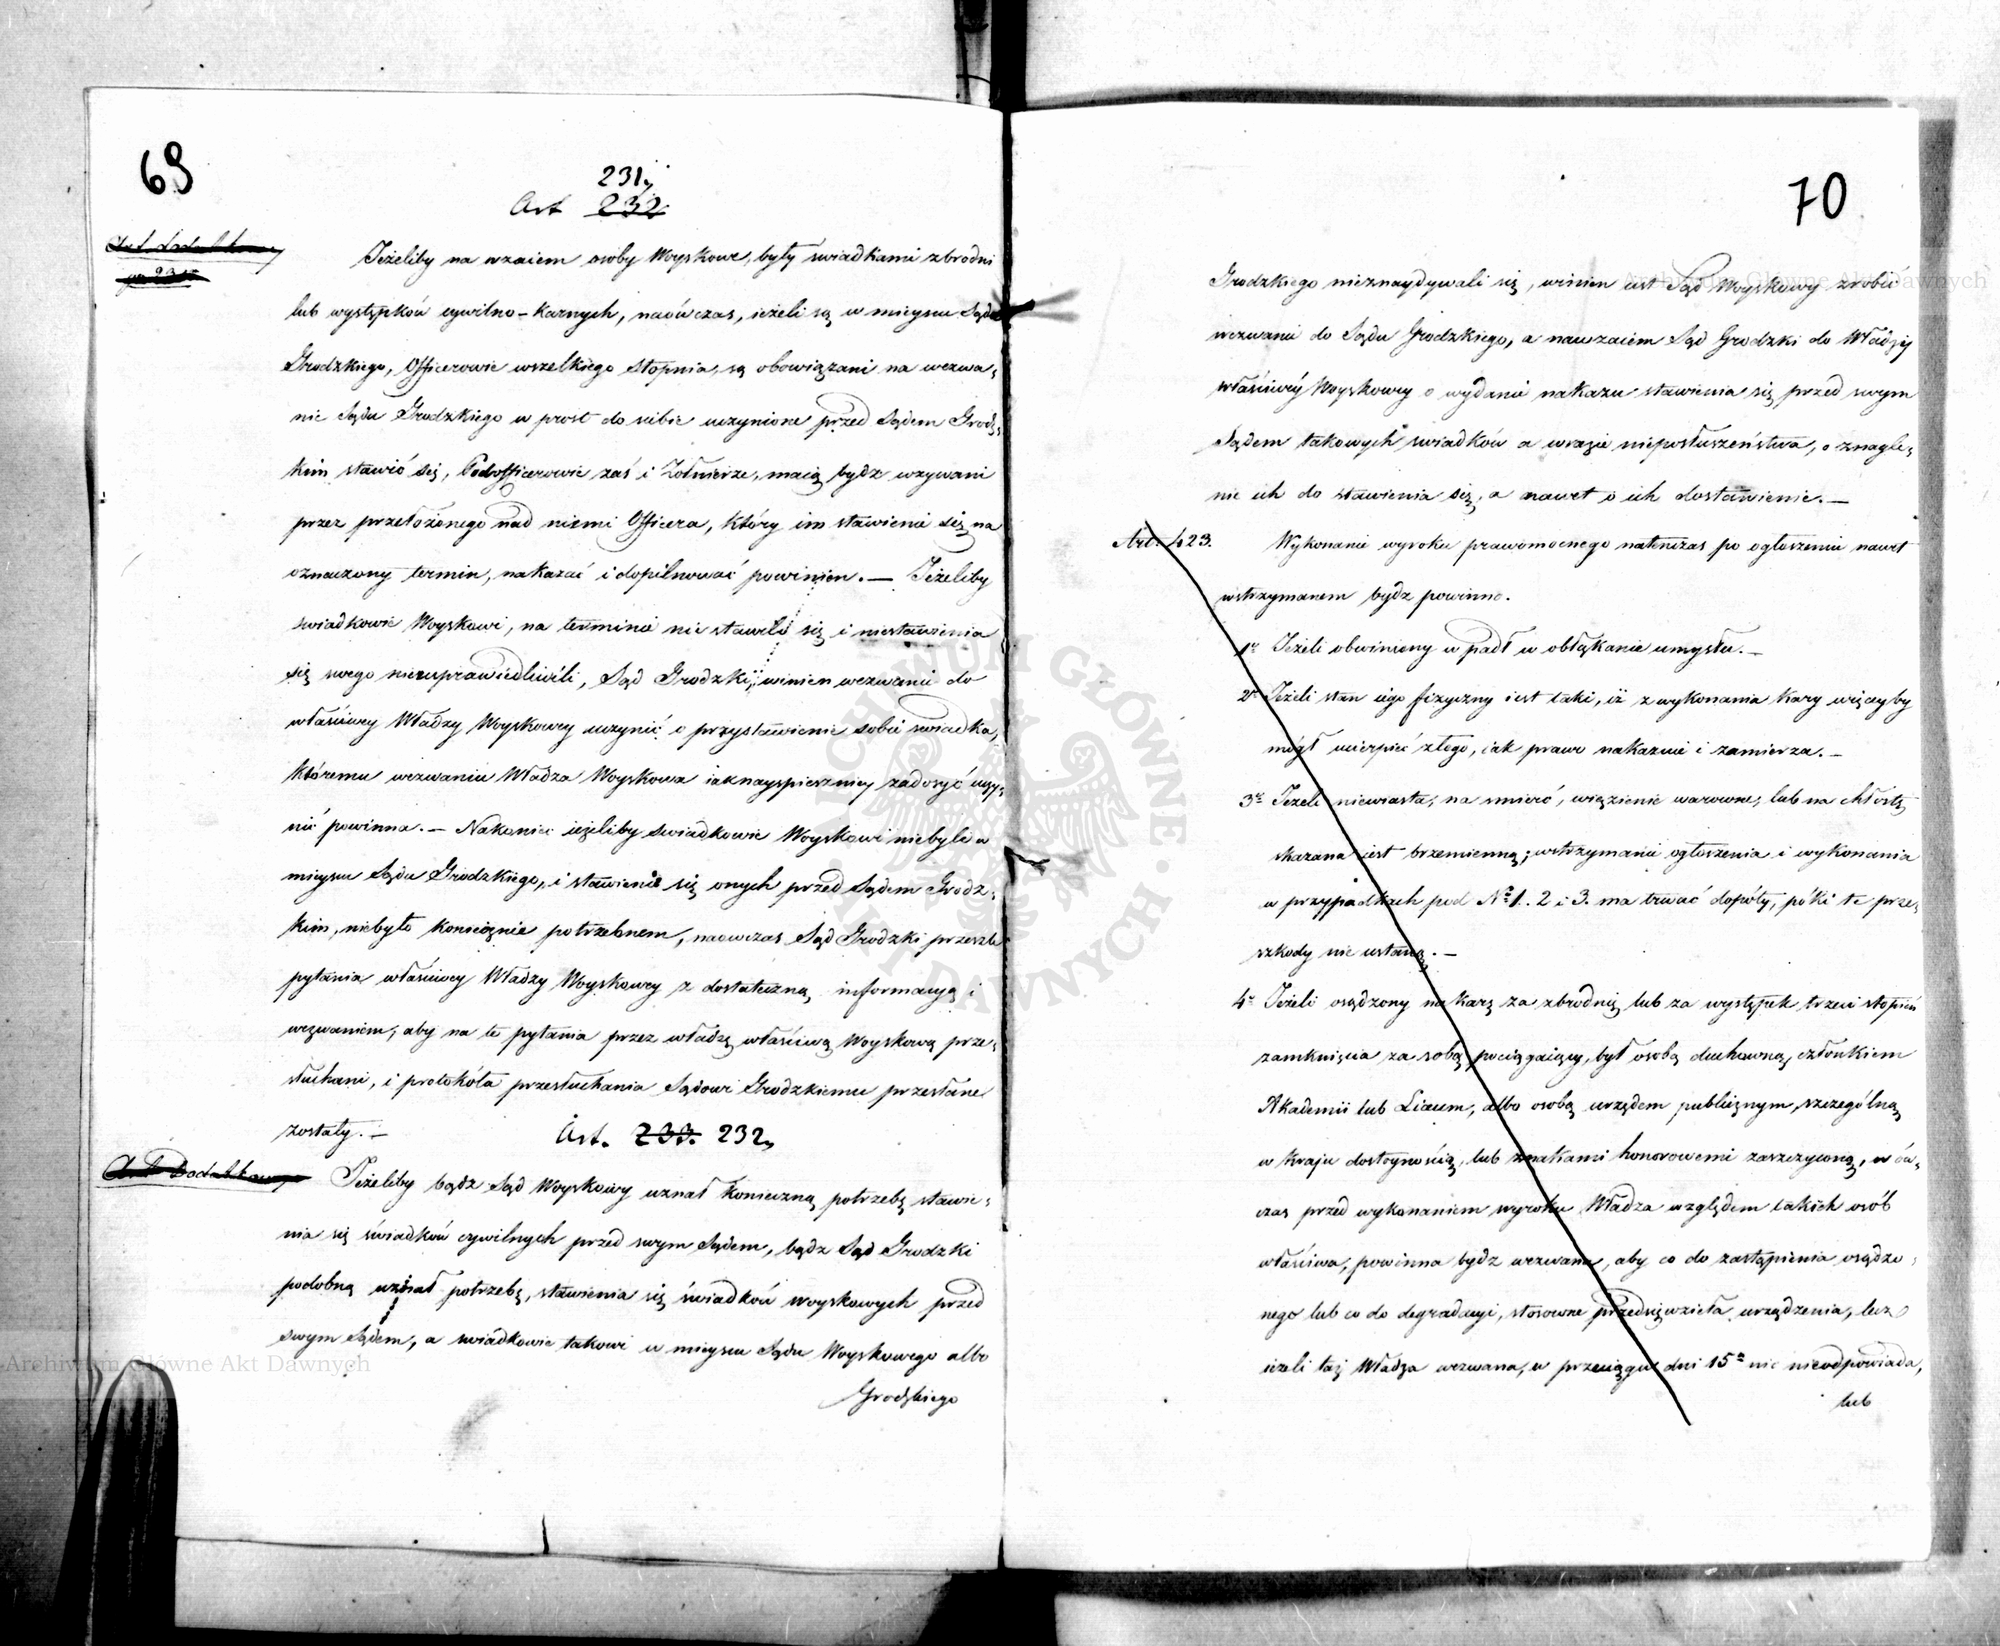 69
231,
Art 232
Art. dodatkowy
Jeżeliby na wzaiem osoby Woyskowe, były świadkami zbrodni
lub występków cywilno-karnych, naówczas, ieżeli są w mieyscu Sądu
Grodzkiego, Officerowie wszelkiego stopnia, są obowiązani na wezwa=
nie Sądu Grodzkiego w prost do siebie uczynione przed Sądem Grodz=
kim stawić się, Podofficerowie zaś i Żołnierze, maią bydz wzywani
przez przełożonego nad niemi Officera, który im stawienie się na
oznaczony termin, nakazać i dopilnować powinien. — Jeżeliby
swiadkowie Woyskowi, na terminie nie stawili się i niestawienia
się swego nieusprawiedliwili, Sąd Grodzki, winien wezwanie do
właściwey Władzy Woyskowey uczynić o przystawienie sobie swiadka,
któremu wezwaniu Władza Woyskowa iaknayspieszniey zadosyć uczy=
nić powinna. — Nakoniec ieżeliby swiadkowie Woyskowi niebyli w
mieyscu Sądu Grodzkiego, i stawienie się onych przed Sądem Grodz=
kim, niebyło koniecznie potrzebnem, naowczas Sąd Grodzki przeszle
pytania właściwey Władzy Woyskowey z dostateczną informacyą i
wezwaniem, aby na te pytania przez władzę właściwą Woyskową prze=
słuchani, i protokóła przesłuchania Sądowi Grodzkiemu przesłane
zostały. —
Art. 233. 232,
Art. Dodatkowy
Jeżeliby bądz Sąd Woyskowy uznał konieczną potrzebę stawie=
nia się świadków cywilnych przed swym Sądem, bądz Sąd Grodzki
podobną uznał potrzebę, stawienia się świadków woyskowych przed
swym Sądem, a swiadkowie takowi w mieyscu Sądu Woyskowego albo
Grodzkiego
70
Grodzkiego nieznaydywali się, winien iest Sąd Woyskowy zrobić
wezwanie do Sądu Grodzkiego, a nawzaiem Sąd Grodzki do Władzy
właściwéy Woyskowey o wydanie nakazu stawienia się przed swym
Sądem takowych swiadków a wrazie nieposłuszeństwa, o znagle=
nie ich do stawienia się, a nawet o ich dostawienie. —
Art. 423. Wykonanie wyroku prawomocnego natenczas po ogłoszeniu nawet
wstrzymanem bydz powinno.
1e Jeżeli obwiniony w padł w obłąkanie umysłu. —
2e Jeżeli stan iego fizyczny iest taki, iż z wykonania kary więcey by
mógł ucierpieć złego, iak prawo nakazuie i zamierza. —
3e Jeżeli niewiasta, na smierć, więzienie warowne, lub na chłostę
skazana iest brzemienną; wstrzymanie ogłoszenia i wykonania
w przypadkach pod No 1. 2 i 3. ma trwać dopóty, póki te prze=
szkody nie ustaną. —
4e Jeżeli osądzony na karę za zbrodnię lub za występek trzeci stopień
zamknięcia za sobą pociągaiący, był osobą duchowną, członkiem
Akademii lub Liceum, albo osobą urzędem publicznym, szczególną
w kraju dostoynością, lub znakami honorowemi zaszczyconą, w ów=
czas przed wykonaniem wyroku Władza względem takich osób
właściwa, powinna bydz wezwana, aby co do zastąpienia osądzo=
nego lub co do degradacyi, stosowne przedsięwzieła urządzenia, lecz
ieżeli taż Władza wezwana, w przeciągu dni 15u nic nieodpowiada,
lub